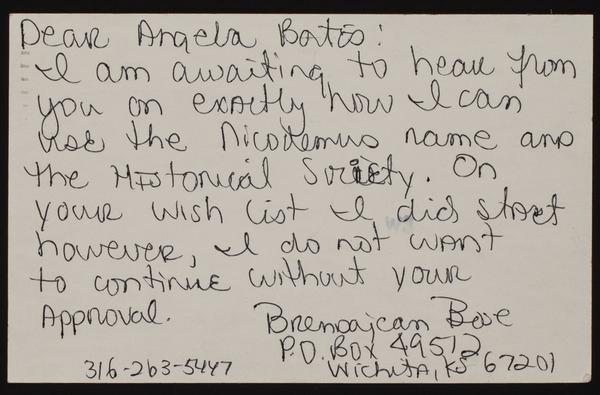 Dear Angela Bates:
I am awaiting to hear from
you on exactly how I can
use the Nicodemus name and
the Historical Society. On
your wish list I did start
however, I do not want
to continue without your
Approval.
Brendajean
P.O. Box 49512
Wichita, KS 67201
316-263-5447